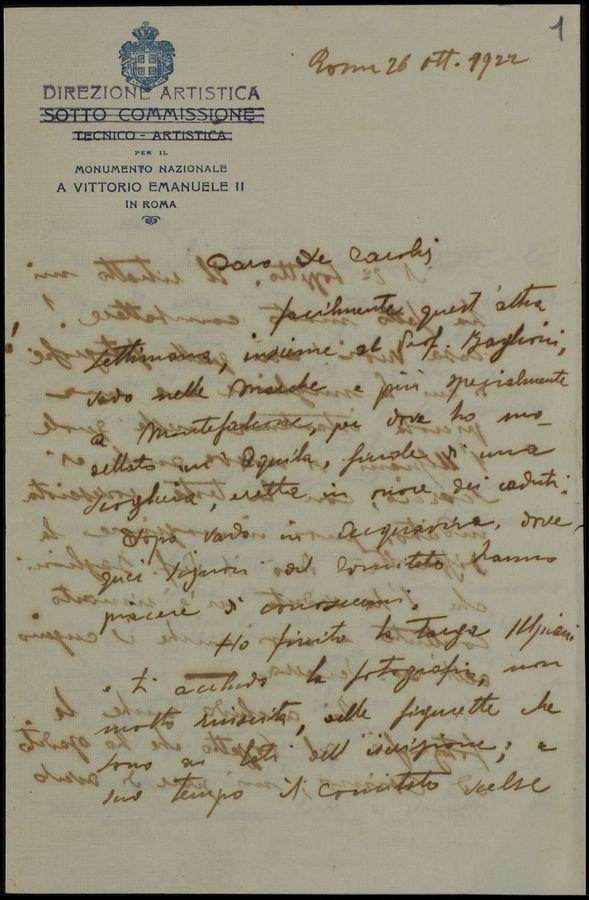 1
DIREZIONE ARTISTICA
SOTTO COMMISSIONE
TECNICO - ARTISTICA
PER IL
MONUMENTO NAZIONALE
A VITTORIO EMANUELE II
IN ROMA
Roma 26 ott. 1922
Caro De Carolis
facilmente quest'altra
settimana, insieme al Prof. Baglioni,
vado nelle Marche e più specialmente
a Montefalcone, per dove ho mo-
dellato un'Aquila, finale di una
scogliera, eretta in onore dei caduti.
Dopo vado in Acquaviva, dove
quei signori del Comitato hanno
piacere di conoscermi.
Ho finito la targa Ulpiani
e ti accludo la fotografia, non
molto riuscita, delle figurette che
sono ai lati dell'iscrizione; a
suo tempo il Comitato scelse